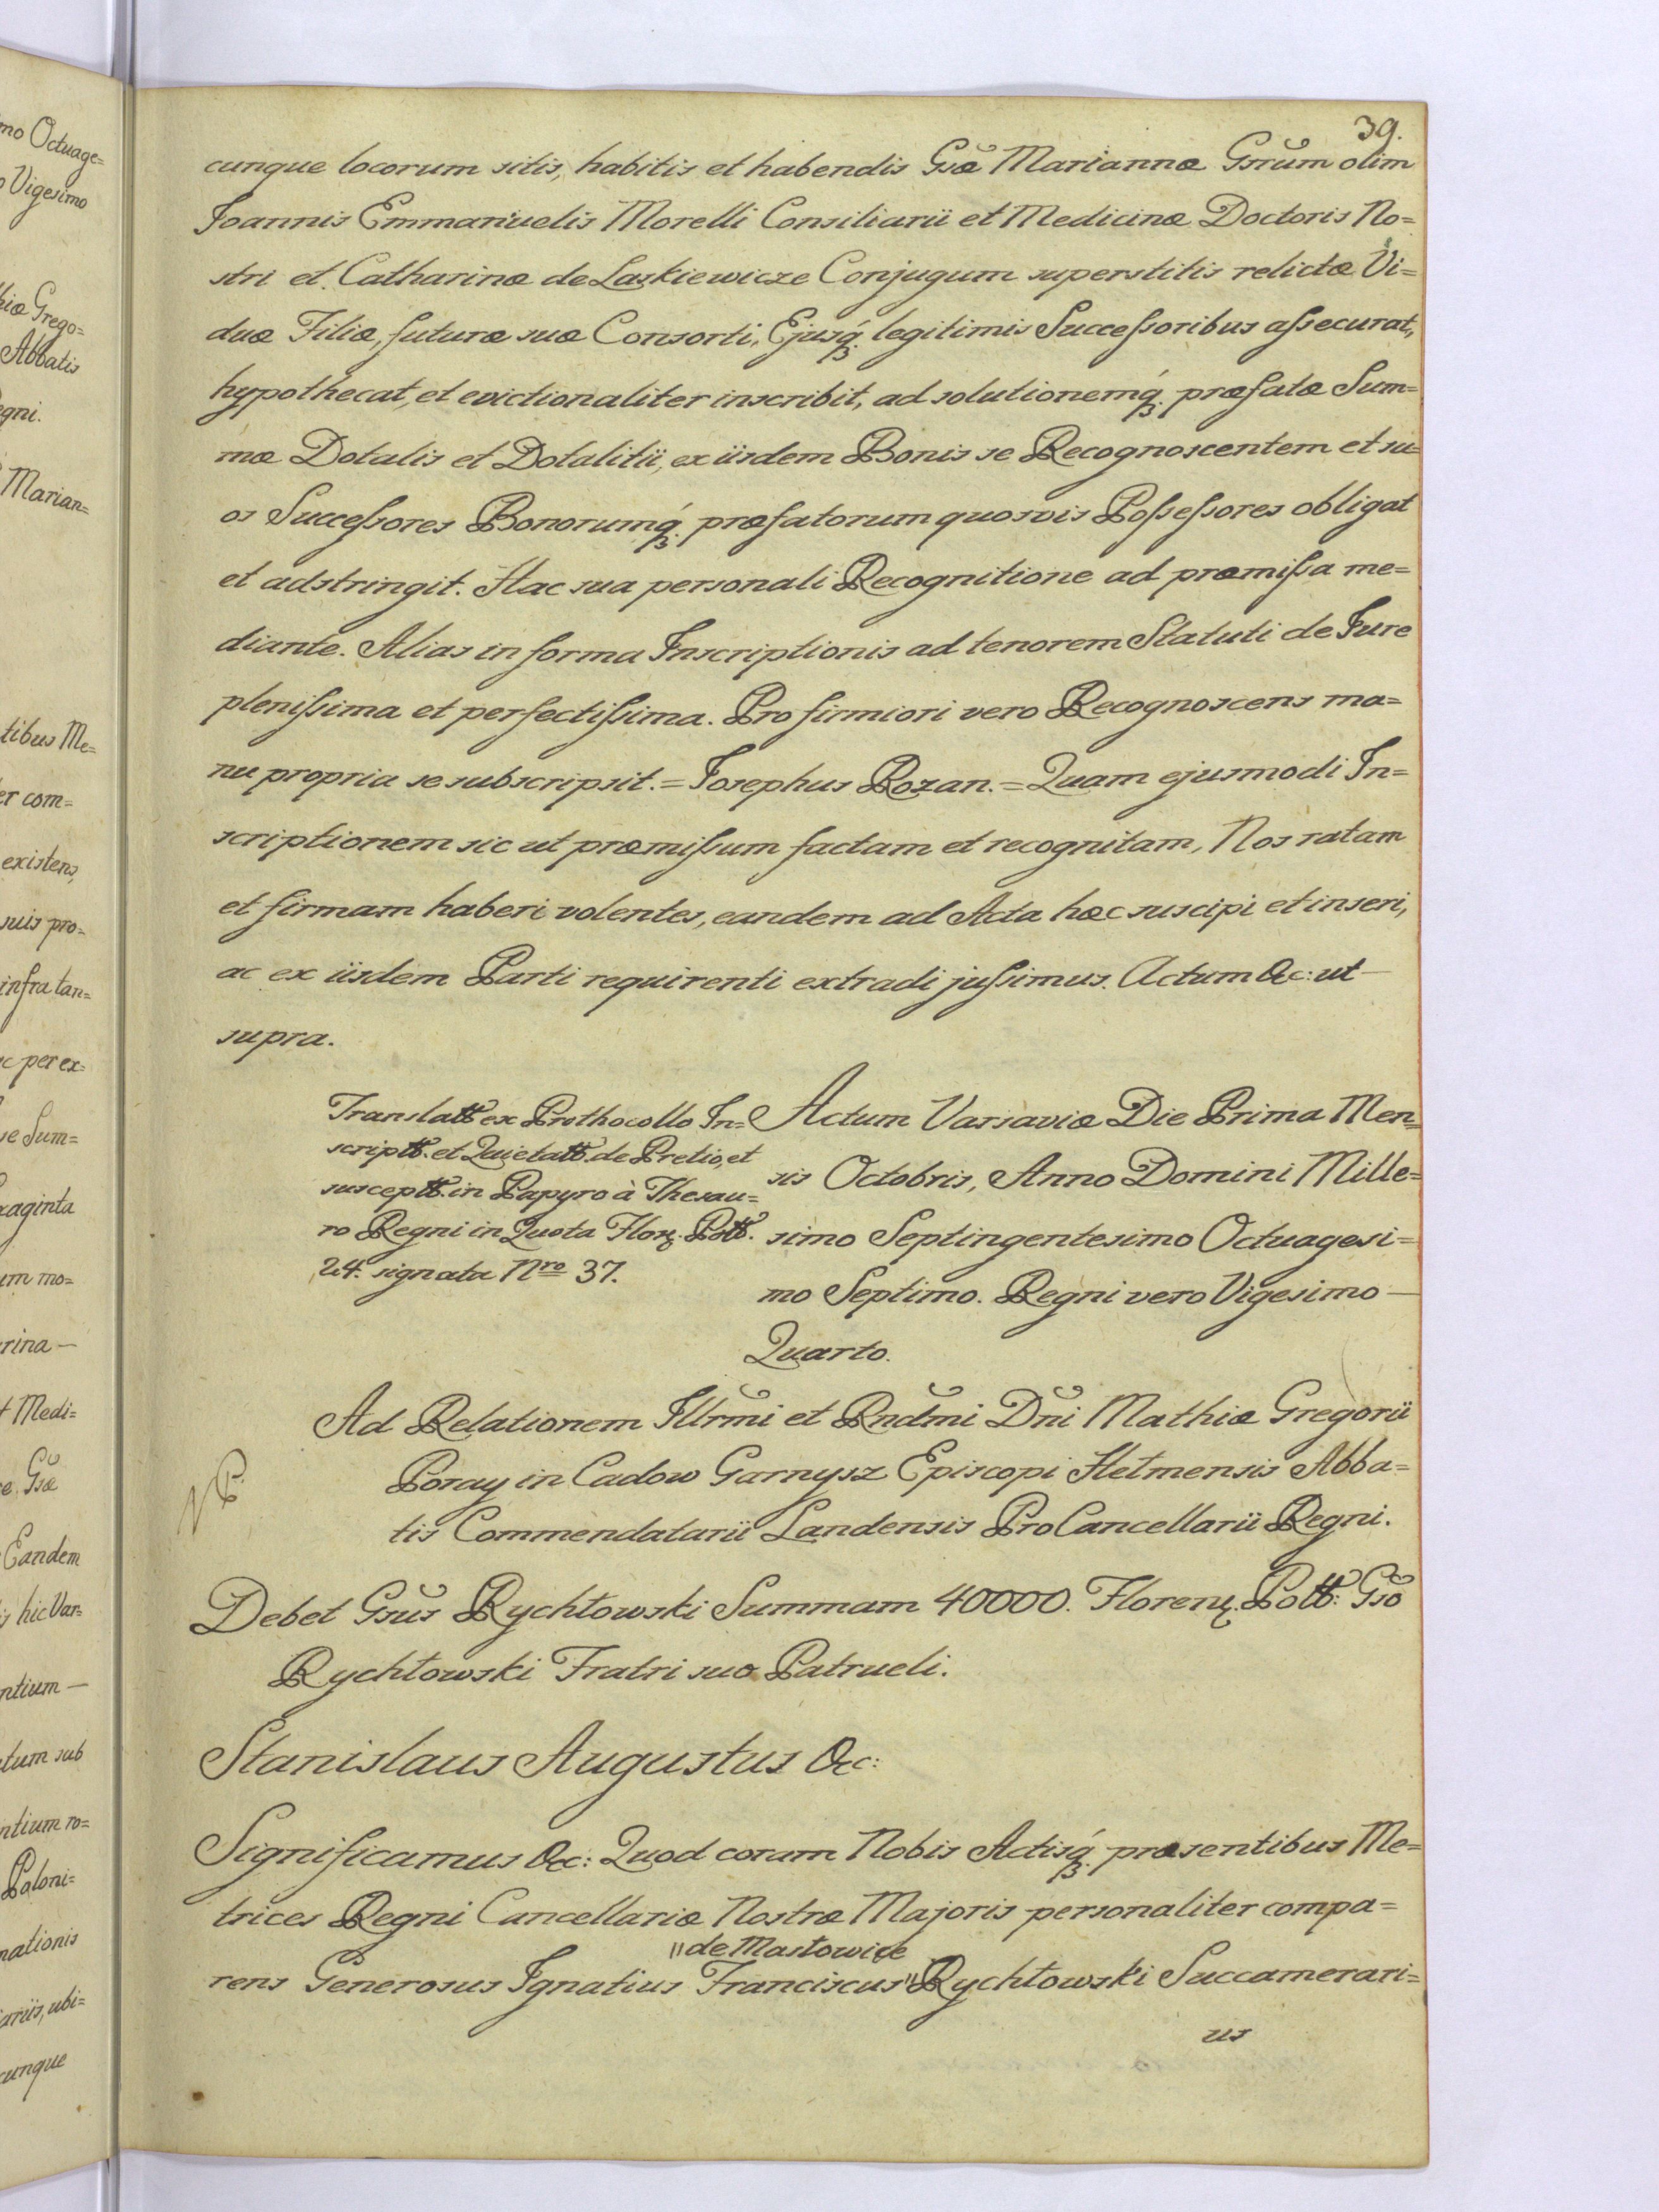 39.
cunque locorum sitis, habitis et habendis Gsæ Mariannæ Gsrum olim
Joannis Emmanuelis Morelli Consiliarii et Medicinæ Doctoris No=
stri et Catharinæ de Laskiewicze Conjugum superstitis relictæ Vi=
duæ Filiæ, futuræ suæ Consorti, Ejusq́. legitimis Succeſsoribus aſsecurat,
hypothecat, et evictionaliter inscribit, ad solutionemq́. præfatæ Sum=
mæ Dotalis et Dotalitii, ex iisdem Bonis se Recognoscentem et su=
os Succeſsores Bonorumq́. præfatorum quosvis Poſseſsores obligat
et adstringit. Hac sua personali Recognitione ad præmiſsa me=
diante. Alias in forma Inscriptionis ad tenorem Statuti de Jure
pleniſsima et perfectiſsima. Pro firmiori vero Recognoscens ma=
nu propria se subscripsit. = Josephus Rozan. = Quam ejusmodi In=
scriptionem sic ut præmiſsum factam et recognitam, Nos ratam
et firmam haberi volentes, eandem ad Acta hæc suscipi et inseri,
ac ex iisdem Parti requirenti extradi juſsimus. Actum &c: ut
supra.
Translatt ex Prothocollo In=
scriptt. et Quietatt. de Pretio, et
susceptt. in Papyro à Thesau=
ro Regni in Quota Flor. Poll.
24. signata Nro 37.
Actum Varsaviæ Die Prima Men=
sis Octobris, Anno Domini Mille=
simo Septingentesimo Octuagesi=
mo Septimo. Regni vero Vigesimo
Quarto.
Ad Relationem Illrmi et Rndmi Dni Mathiæ Gregorii
Poray in Cadow Garnysz Episcopi Helmensis Abba=
tis Commendatarii Landensis ProCancellarii Regni.
Debet Gsus Rychłowski Summam 40000. Floren. Poll: Gso
Rychłowski Fratri suo Patrueli.
Stanislaus Augustus &c:
Significamus &c: Quod coram Nobis Actisq́. præsentibus Me=
trices Regni Cancellariæ Nostræ Majoris personaliter compa=
"de Masłowice
rens Generosus Ignatius Franciscus" Rychłowski Succamerari=
us
mo Octuage=
Vigesimo
Grego=
Abbatis
egni.
Marian=
tibus Me=
er com=
existens,
suis pro=
infra tan=
c per ex=
Sum=
xaginta
um mo=
rina
Medi=
Gsæ
Eandem
hic Var=
ntium
tum sub
ntium ro=
Poloni=
nationis
ariis, ubi=
cunque